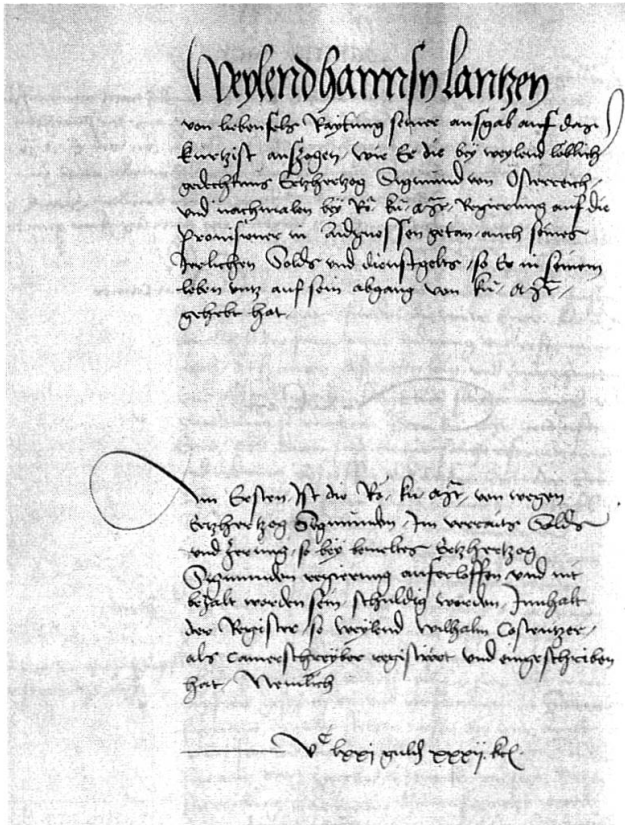 Weylend hannsn lantzen
von liebenfels Raytung seiner ausgab auf daz
kurtzist auszogen, wie Er die by weylend loblich
gedechtnus Ertzhertzog Sigmund von Osterreich,
und nachmalen bey Rö. kü. Mt. Regierung auf die
provisioner in Aidgnossen getan, auch seines
Jerlichen Solds und dienstgelts, so Er in seinem
leben untz auf sein abgang von kü. Mt.
gehebt hat.
Im Ersten, Ist die Rö. kü. Mt. von wegen
Ertzhertzog Sigmunden, Im verraitz Solds
und Zerung, so bey bemeltes Ertzhertzog
Sigmunden regierung aufferloffen und nit
bezalt worden sein, schuldig worden, Innhalt
der Register, so weylend wilhalm Costentzer,
als Camerschreyber registriert und eingeschriben
hat, Nemlich
Vc lxxj guld xxxij kr.